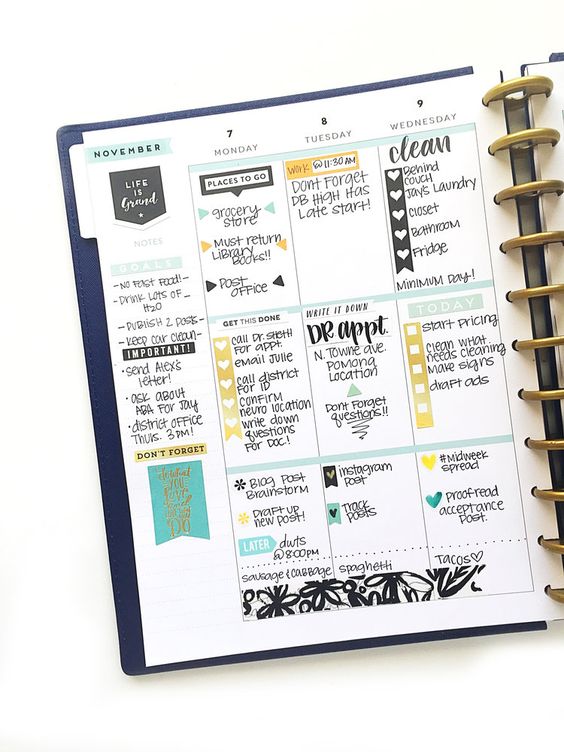 NOVEMBER
LIFE
IS
Grand
NOTES
GOALS
- No fast food! -
- Drink lots of -
H2O
- Publish 2 posts -
- Keep car clean -
IMPORTANT!
• send Alex's
letter!
• ask about
ABA for Jay
• district office
Thurs. 3PM!
DON'T FORGET
Do what
YOU
LOVE
what
YOU
DO
7
MONDAY
PLACES TO GO
grocery
store
Must return
Library
Books!!
Post
office
GET THIS DONE
call Dr. Sheth
for appt.
email Julie
call district
for ID
confirm
neuro location
write down
questions
for Doc!
Blog Post
Brainstorm
Draft up
new post!
LATER
duts
@8:00PM
Sausage & Cabbage
8
TUESDAY
WORK @ 11:30 AM
Dont Forget
DB High Has
Late start!
WRITE IT DOWN
DR appt.
N. Towne ave.
Pomona
Location
Dont Forget
questions!!
instagram
Post
Track
posts
spaghetti
9
WEDNESDAY
clean
Behind
couch
Jay's Laundry
Closet
Bathroom
Fridge
Minimum Day!
TODAY
start pricing
clean what
needs cleaning
make signs
draft ads
#Midweek
spread
Proofread
acceptance
Post.
Tacos♡